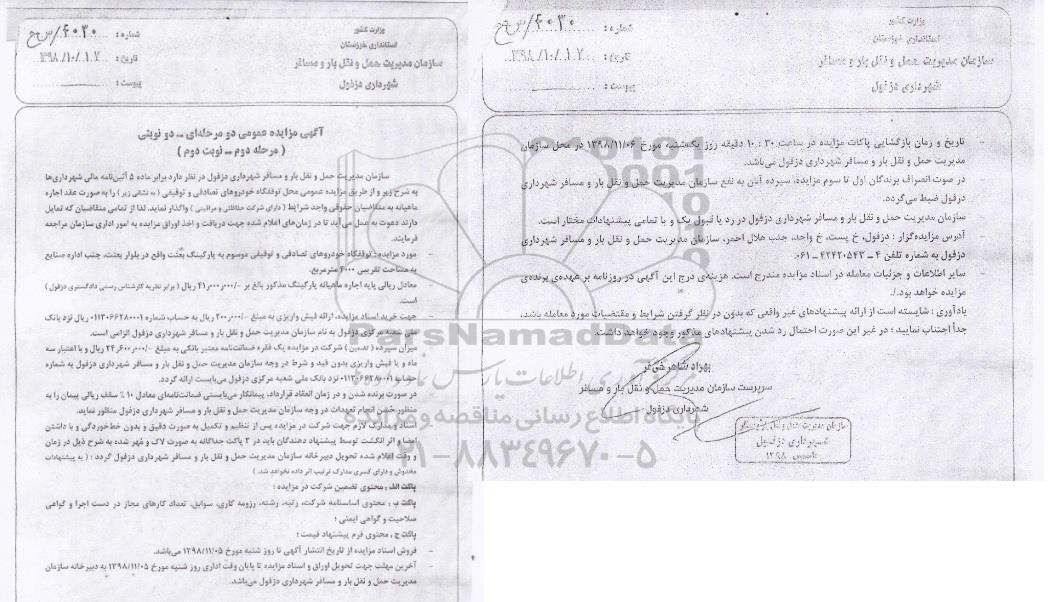 وزارت کشور
استانداری خوزستان
سازمان مدیریت حمل و نقل بار و مسافر
شهرداری دزفول
شماره : ۶۰۳۰/س ح
تاریخ : ۱۳۹۸/۱۰/۱۷
پیوست :
آگهی مزایده عمومی دو مرحله‌ای – دو نوبتی
( مرحله دوم – نوبت دوم )
سازمان مدیریت حمل و نقل بار و مسافر شهرداری دزفول در نظر دارد برابر ماده ۵ آئین‌نامه مالی شهرداری‌ها
به شرح زیر و از طریق مزایده عمومی محل توقفگاه خودروهای تصادفی و توقیفی ( به نشانی زیر ) را به صورت عقد اجاره
ماهیانه به متقاضیان حقوقی واجد شرایط ( دارای شرکت حفاظتی و مراقبتی ) واگذار نماید. لذا از تمامی متقاضیان که تمایل
دارند دعوت به عمل می‌آید تا در زمان‌های اعلام شده جهت دریافت و اخذ اوراق مزایده به امور اداری سازمان مراجعه
فرمایند.
- مورد مزایده : توقفگاه خودروهای تصادفی و توقیفی موسوم به پارکینگ بعثت واقع در بلوار بعثت، جنب اداره صنایع
به مساحت تقریبی ۶۰۰۰ مترمربع.
- معادل ریالی پایه اجاره ماهیانه پارکینگ مذکور بالغ بر ۴۱٫۰۰۰٫۰۰۰/- ریال ( برابر نظریه کارشناس رسمی دادگستری دزفول )
است.
- جهت خرید اسناد مزایده، ارائه فیش واریزی به مبلغ ۲۰۰٫۰۰۰/- ریال به حساب شماره ۰۱۱۳۰۶۶۲۸۰۰۰۱ ریال نزد بانک
ملی شعبه مرکزی دزفول به نام سازمان مدیریت حمل و نقل بار و مسافر شهرداری دزفول الزامی است.
- میزان سپرده ( تضمین ) شرکت در مزایده یک فقره ضمانت‌نامه معتبر بانکی به مبلغ ۲۴٫۶۰۰٫۰۰۰/- ریال و با اعتبار سه
ماه و یا فیش واریزی بدون قید و شرط در وجه سازمان مدیریت حمل و نقل بار و مسافر شهرداری دزفول به شماره
حساب ۰۱۱۳۰۶۶۲۸۰۰۰۱ نزد بانک ملی شعبه مرکزی دزفول می‌بایست ارائه گردد.
- در صورت برنده شدن و در زمان انعقاد قرارداد، پیمانکار می‌بایستی ضمانت‌نامه‌ای معادل ۱۰ ٪ سقف ریالی پیمان را به
منظور حسن انجام تعهدات در وجه سازمان مدیریت حمل و نقل بار و مسافر شهرداری دزفول منظور نماید.
- اسناد و مدارک لازم جهت شرکت در مزایده پس از تنظیم و تکمیل به صورت دقیق و بدون خط‌خوردگی و با داشتن
امضا و اثر انگشت توسط پیشنهاد دهندگان باید در ۳ پاکت جداگانه به صورت لاک و مُهر شده به شرح ذیل در زمان
و وقت اعلام شده تحویل دبیرخانه سازمان مدیریت حمل و نقل بار و مسافر شهرداری دزفول گردد : ( به پیشنهادات
مخدوش و دارای کسری مدارک ترتیب اثر داده نخواهد شد. )
پاکت الف : محتوی تضمین شرکت در مزایده ؛
پاکت ب : محتوی اساسنامه شرکت، رتبه، رشته، رزومه کاری، سوابق، تعداد کارهای مجاز در دست اجرا و گواهی
صلاحیت و گواهی ایمنی ؛
پاکت ج : محتوی فرم پیشنهاد قیمت ؛
- فروش اسناد مزایده از تاریخ انتشار آگهی تا روز شنبه مورخ ۱۳۹۸/۱۱/۰۵ می‌باشد.
- آخرین مهلت جهت تحویل اوراق و اسناد مزایده تا پایان وقت اداری روز شنبه مورخ ۱۳۹۸/۱۱/۰۵ به دبیرخانه سازمان
مدیریت حمل و نقل بار و مسافر شهرداری دزفول می‌باشد.
وزارت کشور
استانداری خوزستان
سازمان مدیریت حمل و نقل بار و مسافر
شهرداری دزفول
شماره : ۶۰۳۰/س ح
تاریخ : ۱۳۹۸/۱۰/۱۷
پیوست :
- تاریخ و زمان بازگشایی پاکات مزایده در ساعت ۳۰ : ۱۰ دقیقه روز یک‌شنبه مورخ ۱۳۹۸/۱۱/۰۶ در محل سازمان
مدیریت حمل و نقل بار و مسافر شهرداری دزفول می‌باشد.
- در صورت انصراف برندگان اول تا سوم مزایده، سپرده آنان به نفع سازمان مدیریت حمل و نقل بار و مسافر شهرداری
دزفول ضبط می‌گردد.
- سازمان مدیریت حمل و نقل بار و مسافر شهرداری دزفول در رد یا قبول یک و یا تمامی پیشنهادات مختار است.
- آدرس مزایده‌گزار : دزفول، خ پست، خ واحد، جنب هلال احمر، سازمان مدیریت حمل و نقل بار و مسافر شهرداری
دزفول به شماره تلفن ۴ ـ ۴۲۴۲۰۵۴۳ ـ ۰۶۱
- سایر اطلاعات و جزئیات معامله در اسناد مزایده مندرج است. هزینه‌ی درج این آگهی در روزنامه بر عهده‌ی برنده‌ی
مزایده خواهد بود./
- یادآوری : شایسته است از ارائه پیشنهادهای غیر واقعی که بدون در نظر گرفتن شرایط و مقتضیات مورد معامله باشد،
جداً اجتناب نمایید ؛ در غیر این صورت احتمال رد شدن پیشنهادهای مذکور وجود خواهد داشت.
بهزاد شاهرخی‌فر
سرپرست سازمان مدیریت حمل و نقل بار و مسافر
شهرداری دزفول
سازمان مدیریت حمل و نقل بار و مسافر
شهرداری دزفول
تاسیس ۱۳۹۸
ParsNamadData
پایگاه اطلاع رسانی مناقصه و مزایده
۰۲۱-۸۸۳۴۹۶۷۰-۵